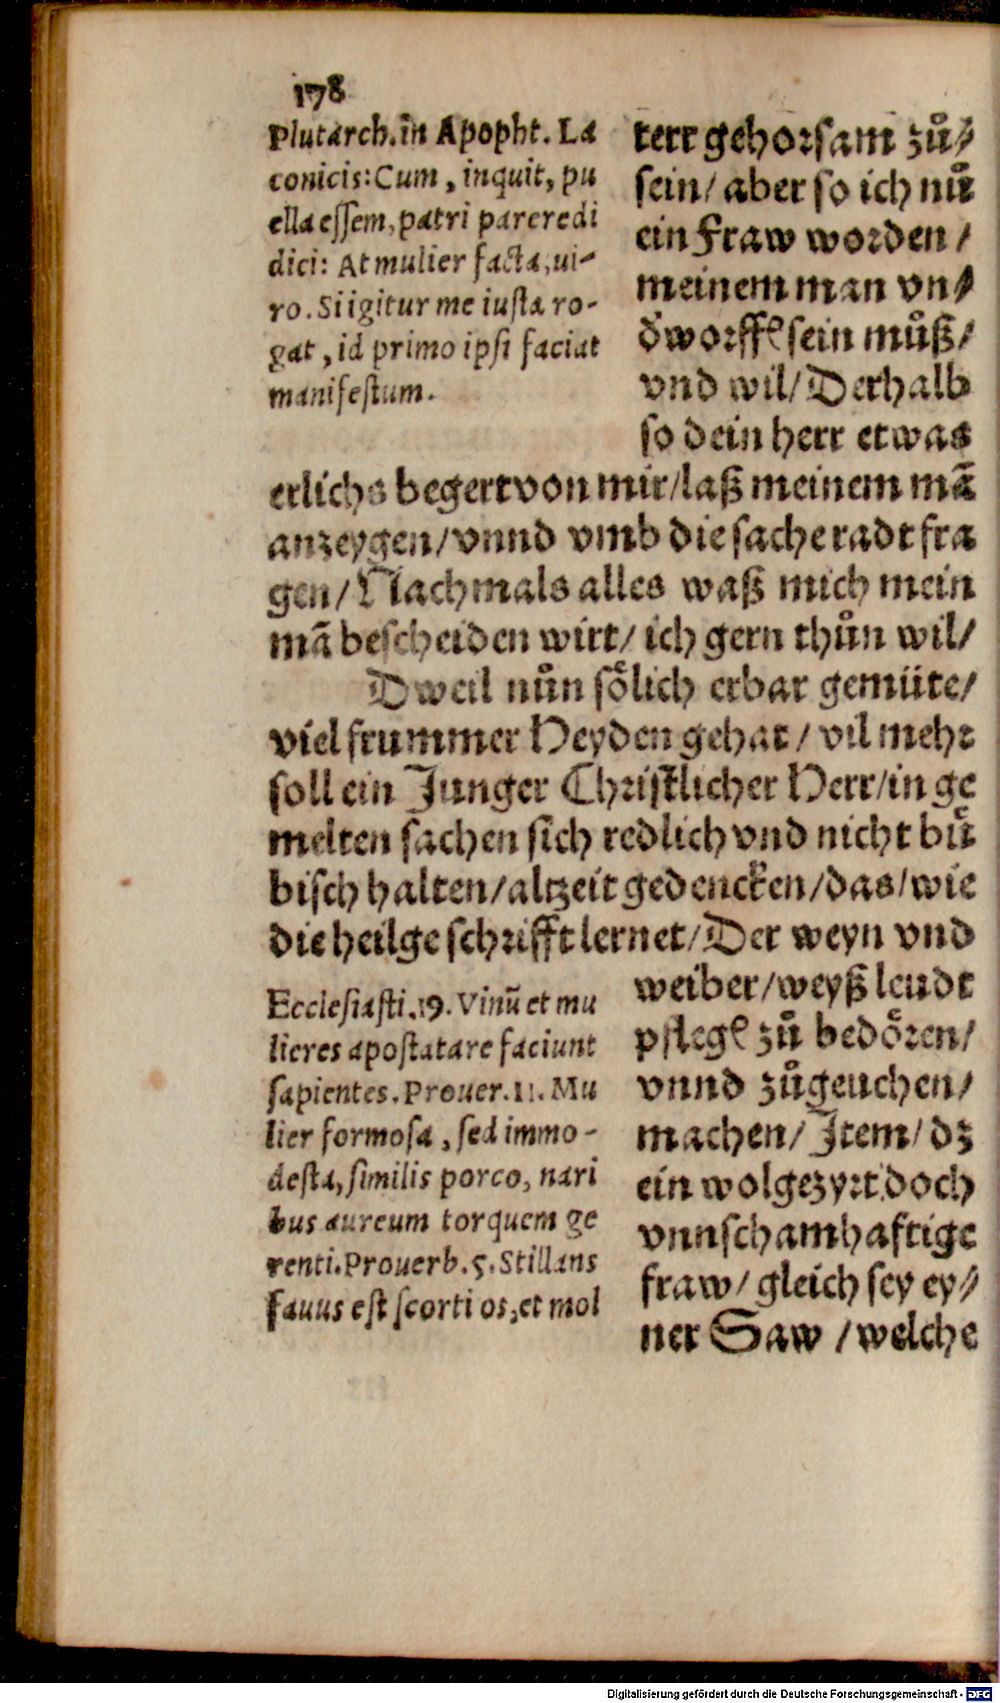 178
Plutarch. in Apopht. La
conicis: Cum, inquit, pu
ella essem, patri pareredi
dici: At mulier facta, ui-
ro. Si igitur me iusta ro-
gat, id primo ipsi faciat
manifestum.
terr gehorsam zů⸗
sein/ aber so ich nů
ein Fraw worden /
meinem man vn⸗
dworffē sein můß/
vnd wil/ Derhalb
so dein herr etwas
erlichs begert von mir/laß meinem mã
anzeygen/vnnd vmb die sache radt fra
gen/ Nachmals alles waß mich mein
mã bescheiden wirt/ ich gern thůn wil/
Dweil nůn sölich erbar gemüte/
viel frummer Heyden gehat / vil mehr
soll ein Junger Christlicher Herr/in ge
melten sachen sich redlich vnd nicht bů
bisch halten/altzeit gedencken/das/wie
die heilge schrifft lernet/Der weyn vnd
Ecclesiasti.19. Vinũ et mu
lieres apostatare faciunt
sapientes. Prouer.11. Mu
lier formosa, sed immo-
desta, similis porco, nari
bus aureum torquem ge
renti. Prouerb.5. Stillans
fauus est scorti os, et mol
weiber/weyß leudt
pflegē zů bedören/
vnnd zůgeuchen/
machen/ Item/ dz
ein wolgezyrt, doch
vnnschamhaftige
fraw/ gleich sey ey⸗
ner Saw /welche
Digitalisierung gefördert durch die Deutsche Forschungsgemeinschaft - DFG